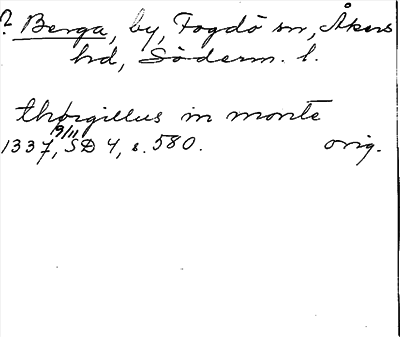 ? Berga, by, Fogdö sn, Åkers
hd, Söderm. l.
thorgillus in monte
1337, 9/11, SD 4, s. 580. orig.